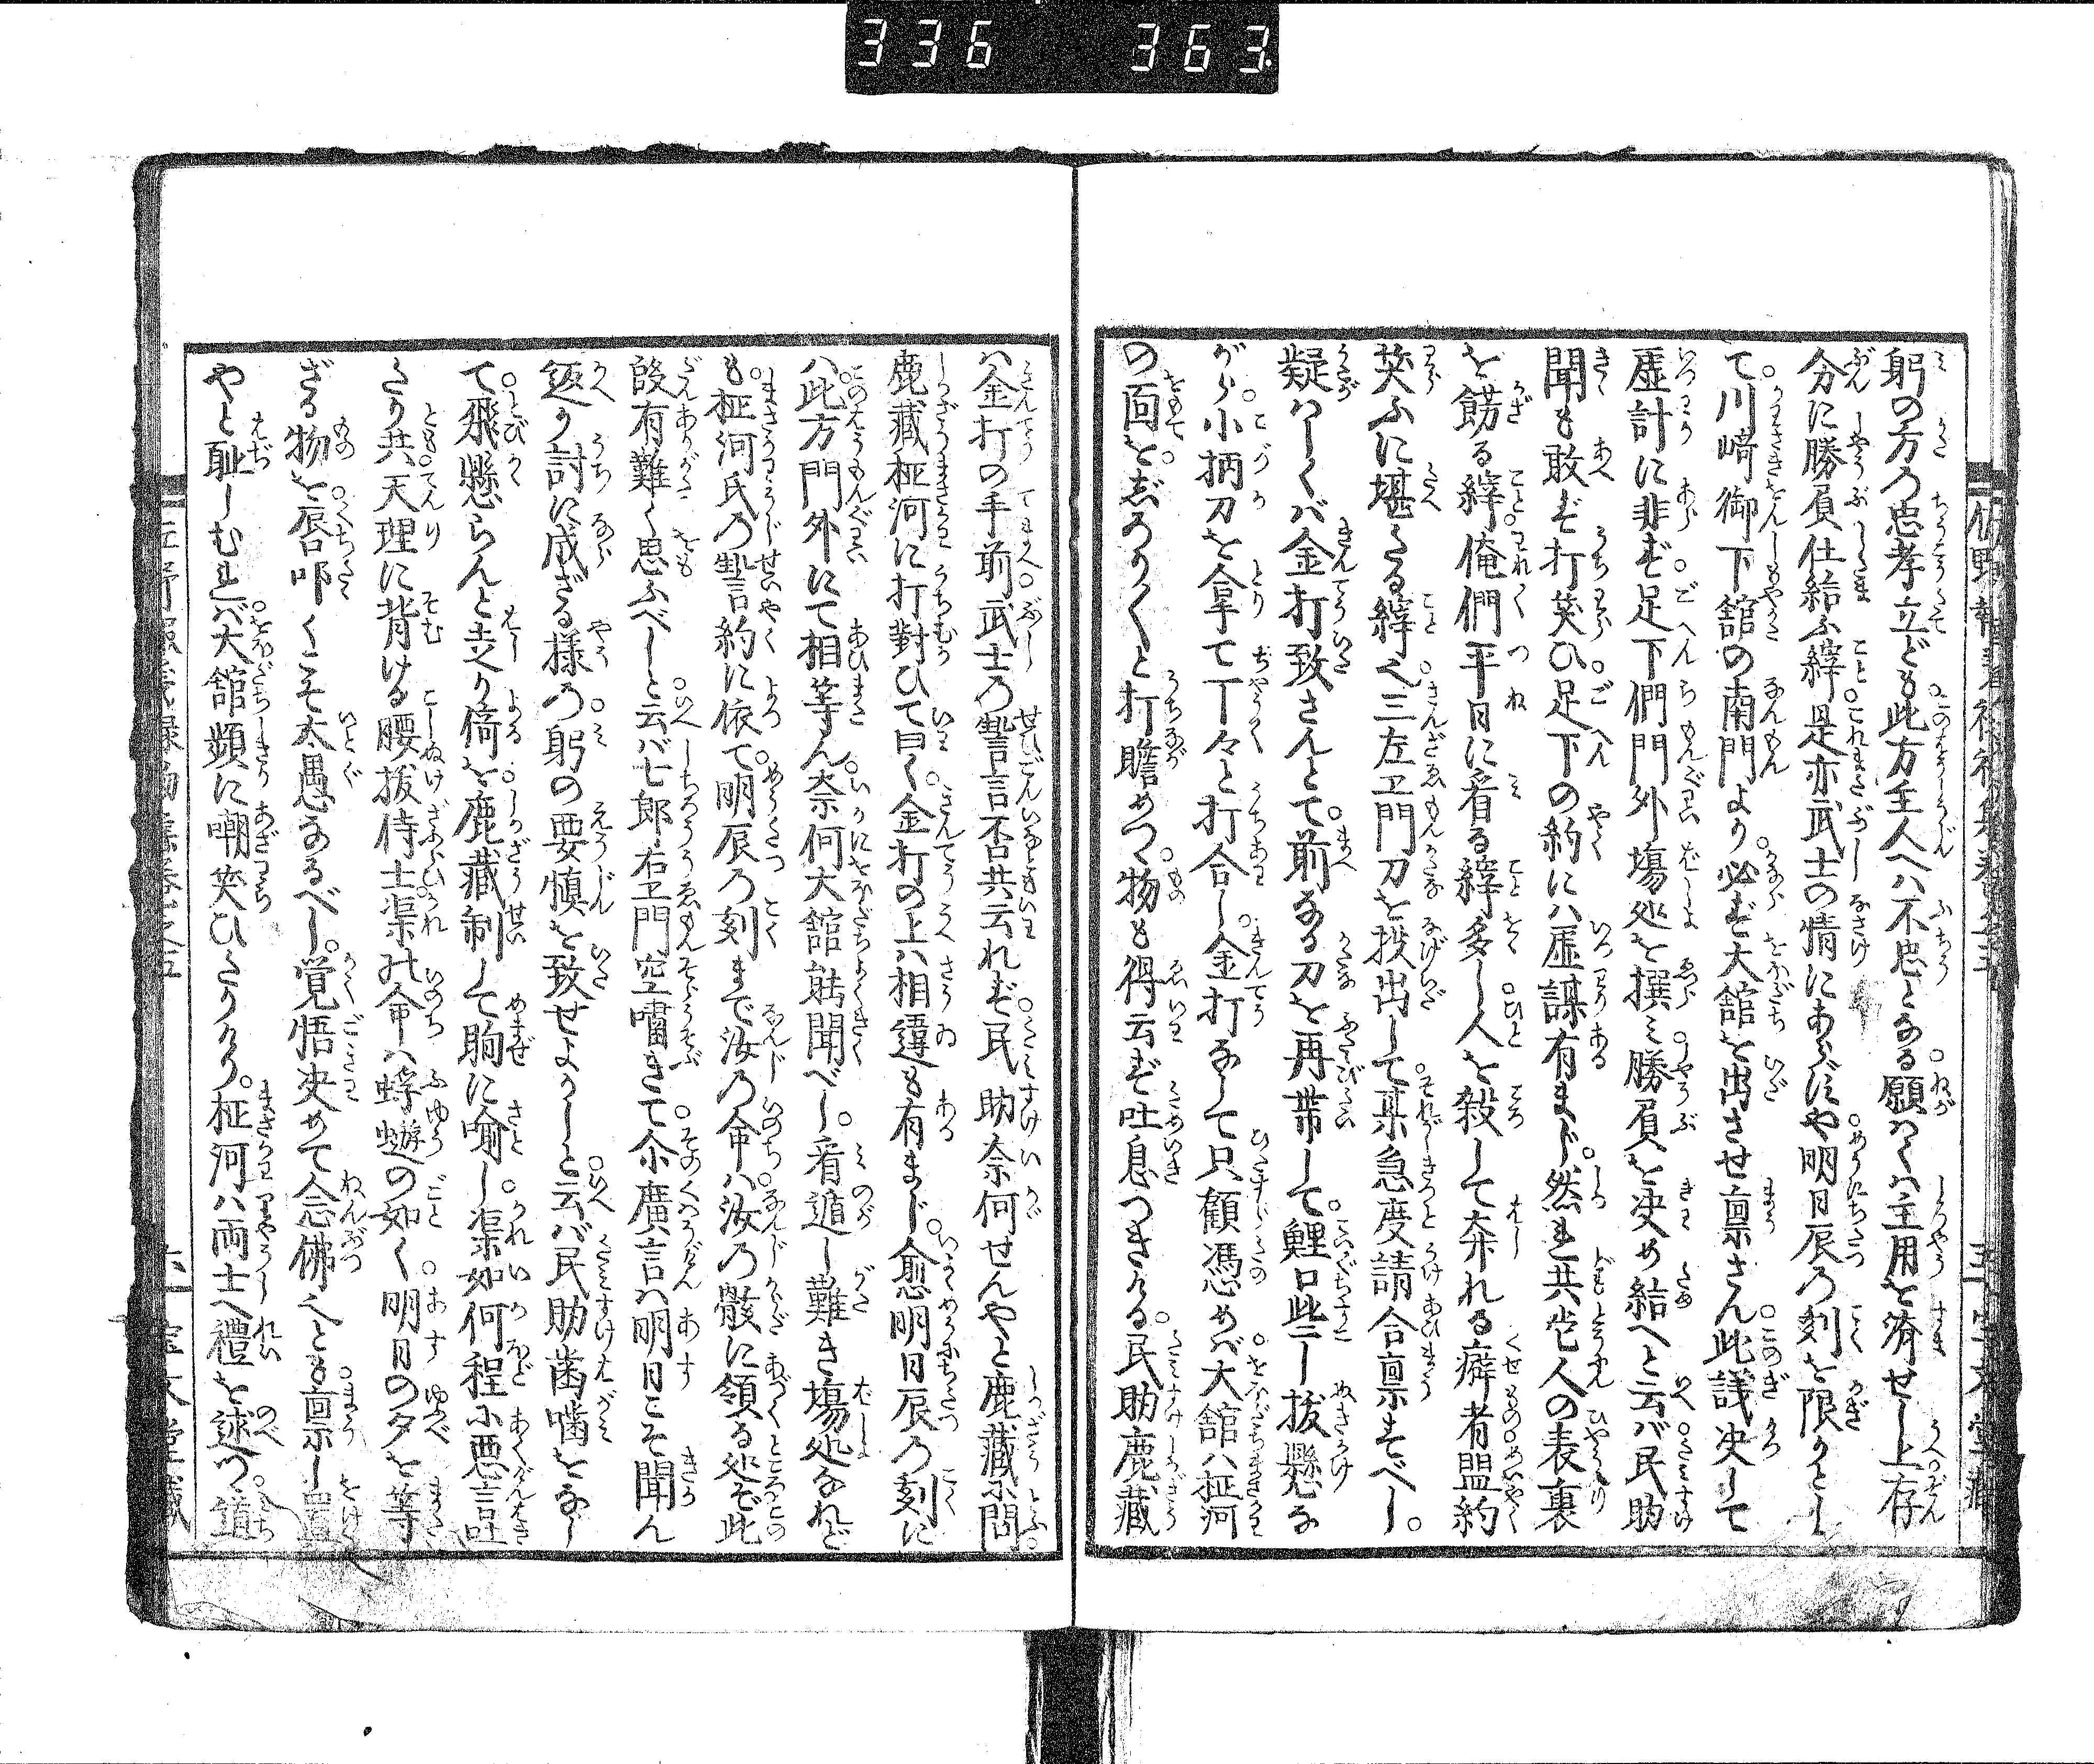 336 363
躬の方の忠孝立ども此方主人へハ不忠となる願くハ主用を濟せし上存
分に勝負仕給ふ縡是亦武士の情にあらずや明日辰の刻を限りとし
て川崎御下舘の南門より必ず大舘を出させ禀さん此議决して
虚計に非ず足下們門外塲処を撰ミ勝負を决め給へと云バ民助
聞も敢ず打笑ひ足下の約にハ虚謀有まじ然れ共
を餝る縡俺們平日に看る縡多し人を殺して奔れる癖者盟約
笑ふに堪たる縡と三左エ門刀を投出して某急度請合禀すべし。
疑ハしくバ金打致さんとて。前なる刀を再帶して。鯉口些し拔懸な
がら。小柄刀を拿て丁々と打合し。金打なして只顧馮めバ大舘ハ柾河
の面を。志のり〳〵と打瞻めつ。物も得云ず吐息つきける。民助鹿藏
ハ金打の手前武士の誓言否共云れず民助奈何せんやと鹿藏に問。
鹿藏柾河に打對ひて曰く。金打の上ハ相違も有まじ。愈明日辰の刻に
ハ此方門外にて相等ん。奈何大舘能聞べし。看遁し難き塲処なれど
も。柾河氏の誓言約に依て。明辰の刻まで汝の命ハ汝の骸に領る処ぞ此
段有難く思ふべしと云バ七郎右エ門空嘯きて。尓廣言ハ明日こそ聞ん
返り討に成ざる様の躬の要愼を致せよかしと云バ民助齒噛をなし
て。飛懸らんと走り倚を鹿藏制して眴に喩し。渠如何程に悪言吐
たり共天理に背ける腰拔侍士渠の命ハ蜉蝣の如く明日の夕を等
ざる物を。唇叩くこそ太愚なるべし。覚悟决めて念佛
やと耻しむれバ大舘頻に嘲笑ひたりける。柾河ハ両士へ禮を述つ道